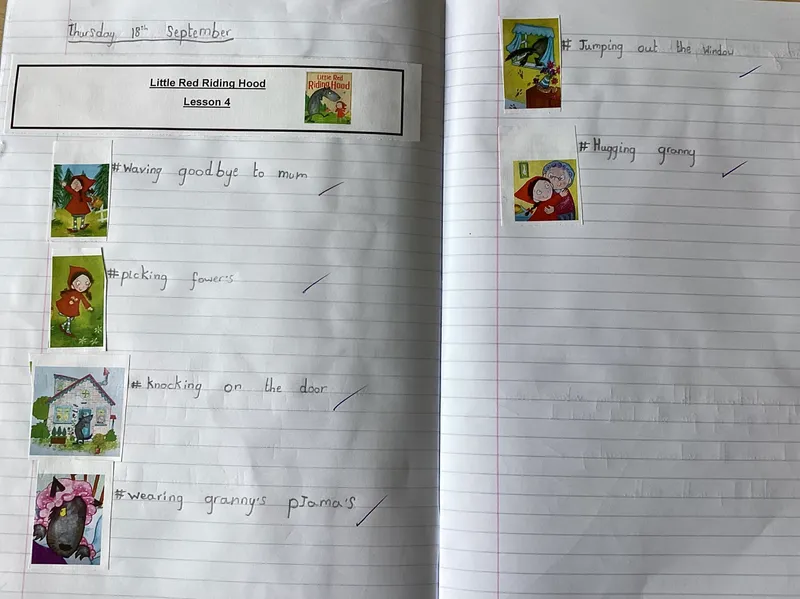 Thursday 18th September
Little Red Riding Hood
Lesson 4
Little Red
Riding Hood
#Waving goodbye to mum
#picking fower's
#Knocking on the door
#wearing granny's pJama's
#Jumping out the window
#Hugging granny